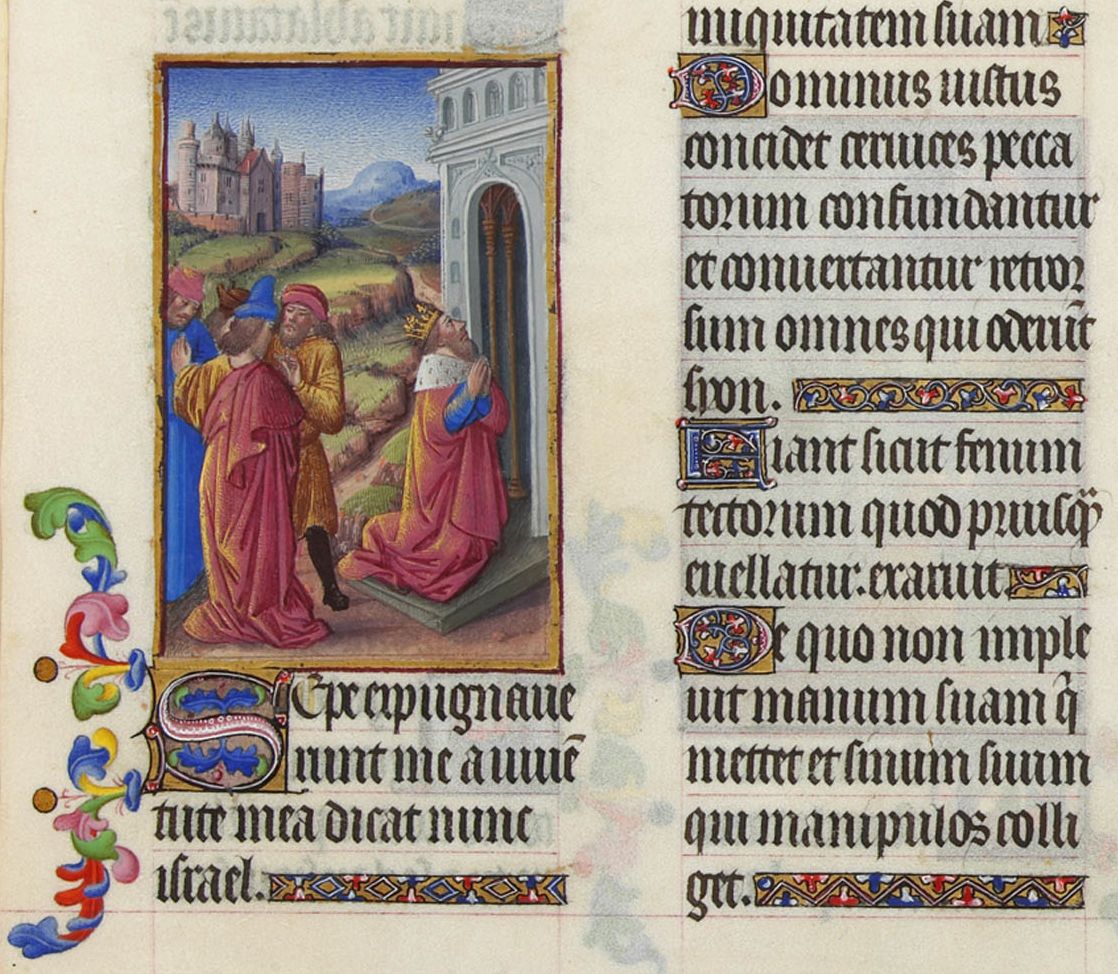 SEpe expugnaue
runt me a iuuē
tute mea dicat nunc
israel.
iniquitatem suam
Dominus iustus
concidet ceruices pecca
torum confundantur
et conuertantur retror
sum omnes qui oderūt
syon.
Fiant sicut fenum
tectorum quod priusq̄
euellatur. exaruit.
De quo non imple
uit manum suam qͥ
mettet et sinum suum
qui manipulos colli
get.